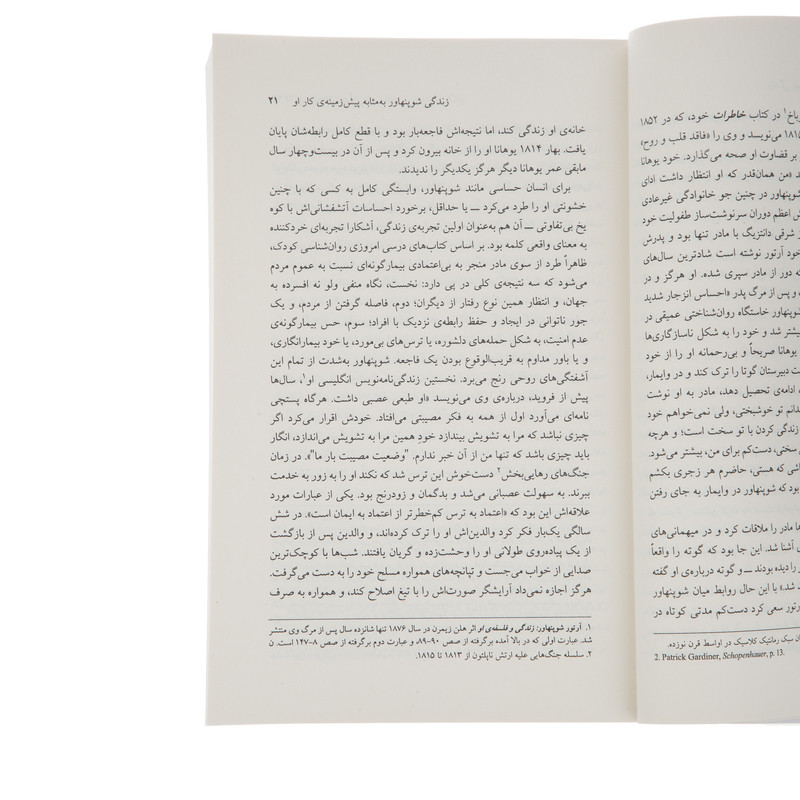 رباخ۱ در کتاب خاطرات خود، که در ۱۸۵۲
می‌نویسد و وی را «فاقد قلب و روح»
بر قضاوت او صحه می‌گذارد. خود یوهانا
«من همان‌قدر که او انتظار داشت ادای
شوپنهاور در چنین جو خانوادگی غیرعادی
اعظم دوران سرنوشت‌ساز طفولیت خود
شرقی دانتزیگ با مادر تنها بود و پدرش
خود آرتور نوشته است شادترین سال‌های
که دور از مادر سپری شده. او هرگز و در
و پس از مرگ پدر «احساس انزجار شدید
شوپنهاور خاستگاه روان‌شناختی عمیقی در
بیشتر شد و خود را به شکل ناسازگاری‌ها
یوهانا صریحاً و بی‌رحمانه او را از خود
دبیرستان گوتا را ترک کند و در وایمار،
ادامه‌ی تحصیل دهد، مادر به او نوشت
بدانم تو خوشبختی، ولی نمی‌خواهم خود
زندگی کردن با تو سخت است؛ و هرچه
سختی، دست‌کم برای من، بیشتر می‌شود.
که هستی، حاضرم هر زجری بکشم
بود که شوپنهاور در وایمار به جای رفتن
مادر را ملاقات کرد و در میهمانی‌های
آشنا شد. این جا بود که گوته را واقعاً
را دیده بودند ـــ و گوته درباره‌ی او گفته
شد.» با این حال روابط میان شوپنهاور
آرتور سعی کرد دست‌کم مدتی کوتاه در
سبک رمانتیک کلاسیک در اواسط قرن نوزده.
2. Patrick Gardiner, Schopenhauer, p. 13.
زندگی شوپنهاور به‌مثابه پیش‌زمینه‌ی کار او ۲۱
خانه‌ی او زندگی کند، اما نتیجه‌اش فاجعه‌بار بود و با قطع کامل رابطه‌شان پایان
یافت. بهار ۱۸۱۴ یوهانا او را از خانه بیرون کرد و پس از آن در بیست‌وچهار سال
مابقی عمر یوهانا دیگر هرگز یکدیگر را ندیدند.
برای انسان حساسی مانند شوپنهاور، وابستگی کامل به کسی که با چنین
خشونتی او را طرد می‌کرد ـــ یا حداقل، برخورد احساسات آتشفشانی‌اش با کوه
یخ بی‌تفاوتی ـــ آن هم به‌عنوان اولین تجربه‌ی زندگی، آشکارا تجربه‌ای خردکننده
به معنای واقعی کلمه بود. بر اساس کتاب‌های درسی امروزی روان‌شناسی کودک،
ظاهراً طرد از سوی مادر منجر به بی‌اعتمادی بیمارگونه‌ای نسبت به عموم مردم
می‌شود که سه نتیجه‌ی کلی در پی دارد: نخست، نگاه منفی ولو نه افسرده به
جهان، و انتظار همین نوع رفتار از دیگران؛ دوم، فاصله گرفتن از مردم، و یک
جور ناتوانی در ایجاد و حفظ رابطه‌ی نزدیک با افراد؛ سوم، حس بیمارگونه‌ی
عدم امنیت، به شکل حمله‌های دلشوره، یا ترس‌های بی‌مورد، یا خود بیمارانگاری،
و یا باور مداوم به قریب‌الوقوع بودن یک فاجعه. شوپنهاور به‌شدت از تمام این
آشفتگی‌های روحی رنج می‌برد. نخستین زندگی‌نامه‌نویس انگلیسی او۱، سال‌ها
پیش از فروید، درباره‌ی وی می‌نویسد «او طبعی عصبی داشت. هرگاه پستچی
نامه‌ای می‌آورد اول از همه به فکر مصیبتی می‌افتاد. خودش اقرار می‌کرد اگر
چیزی نباشد که مرا به تشویش بیندازد خودِ همین مرا به تشویش می‌اندازد، انگار
باید چیزی باشد که تنها من از آن خبر ندارم. "وضعیت مصیبت بار ما"». در زمان
جنگ‌های رهایی‌بخش۲ دست‌خوش این ترس شد که نکند او را به زور به خدمت
ببرند. به سهولت عصبانی می‌شد و بدگمان و زودرنج بود. یکی از عبارات مورد
علاقه‌اش این بود که «اعتماد به ترس کم‌خطرتر از اعتماد به ایمان است». در شش
سالگی یک‌بار فکر کرد والدین‌اش او را ترک کرده‌اند، و والدین پس از بازگشت
از یک پیاده‌روی طولانی او را وحشت‌زده و گریان یافتند. شب‌ها با کوچک‌ترین
صدایی از خواب می‌جست و تپانچه‌های همواره مسلح خود را به دست می‌گرفت.
هرگز اجازه نمی‌داد آرایشگر صورت‌اش را با تیغ اصلاح کند، و همواره به صرف
۱. آرتور شوپنهاور: زندگی و فلسفه‌ی او اثر هلن زیمرن در سال ۱۸۷۶ تنها شانزده سال پس از مرگ وی منتشر
شد. عبارت اولی که در بالا آمده برگرفته از صص ۹۰-۸۹، و عبارت دوم برگرفته از صص ۸-۱۴۷ است. ن
۲. سلسله جنگ‌هایی علیه ارتش ناپلئون از ۱۸۱۳ تا ۱۸۱۵.